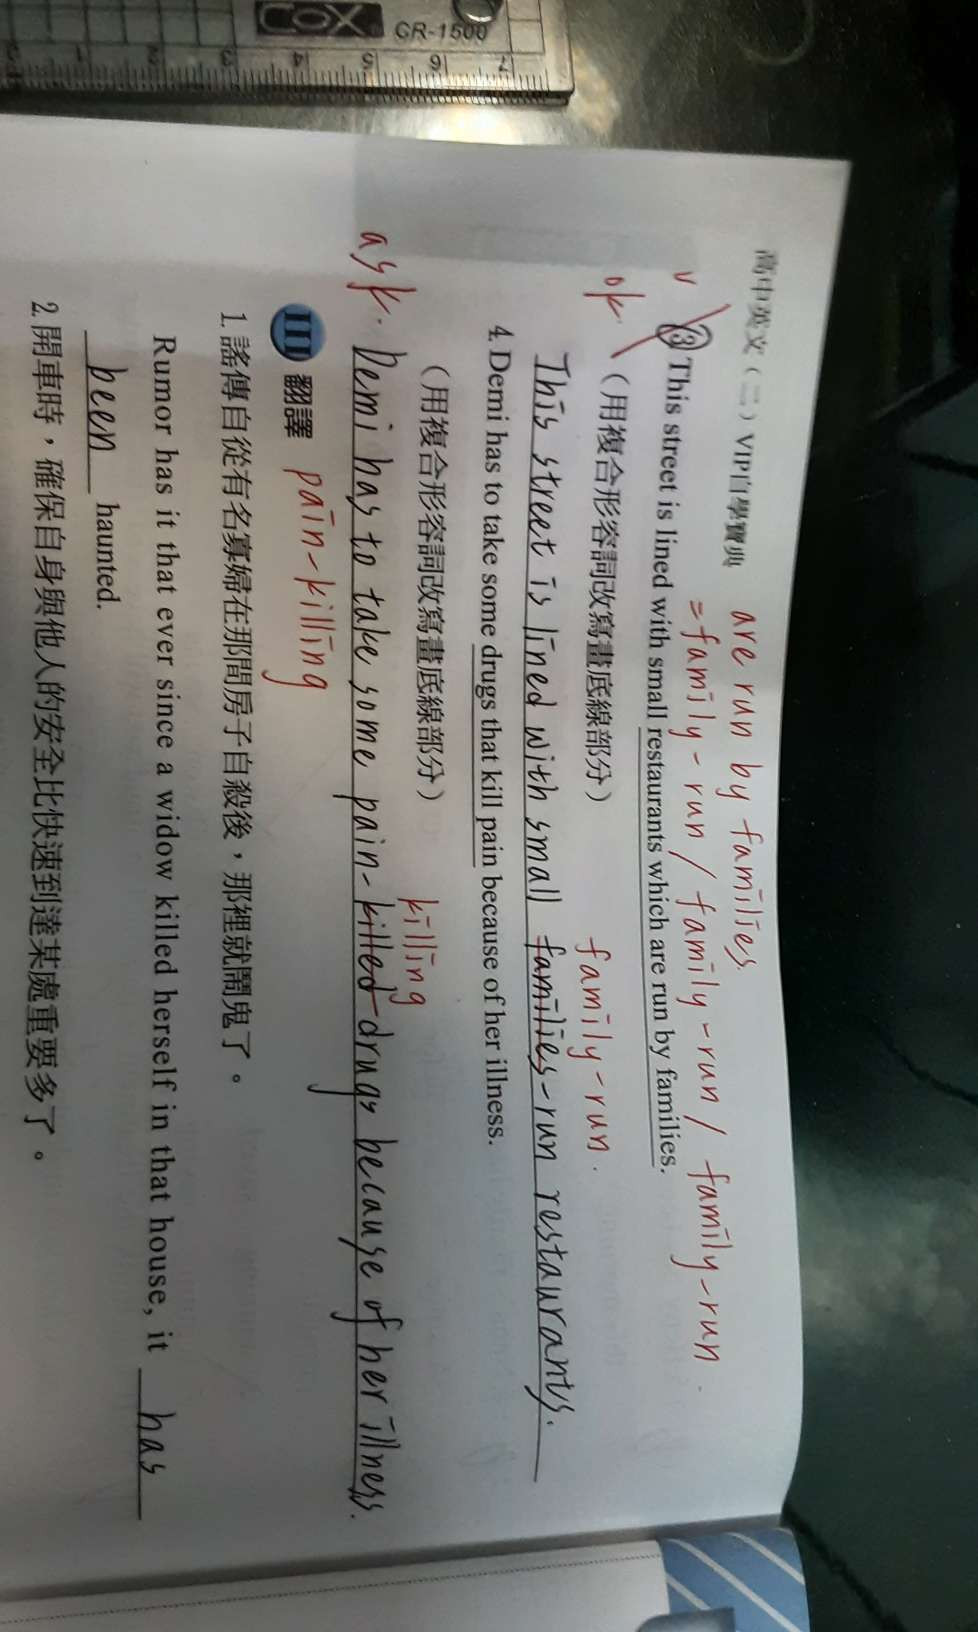 COX CR-1500
7 6 5 4 3 2 1
高中英文(二)VIP自學寶典
are run by families.
=family-run / family-run / family-run.
v
③ This street is lined with small restaurants which are run by families.
ok.
(用複合形容詞改寫畫底線部分)
family-run.
This street is lined with small families-run restaurants.
4. Demi has to take some drugs that kill pain because of her illness.
(用複合形容詞改寫畫底線部分)
killing
ask. Demi has to take some pain-killed drugs because of her illness.
III 翻譯 pain-killing
1. 謠傳自從有名寡婦在那間房子自殺後，那裡就鬧鬼了。
Rumor has it that ever since a widow killed herself in that house, it has
been haunted.
2. 開車時，確保自身與他人的安全比快速到達某處重要多了。